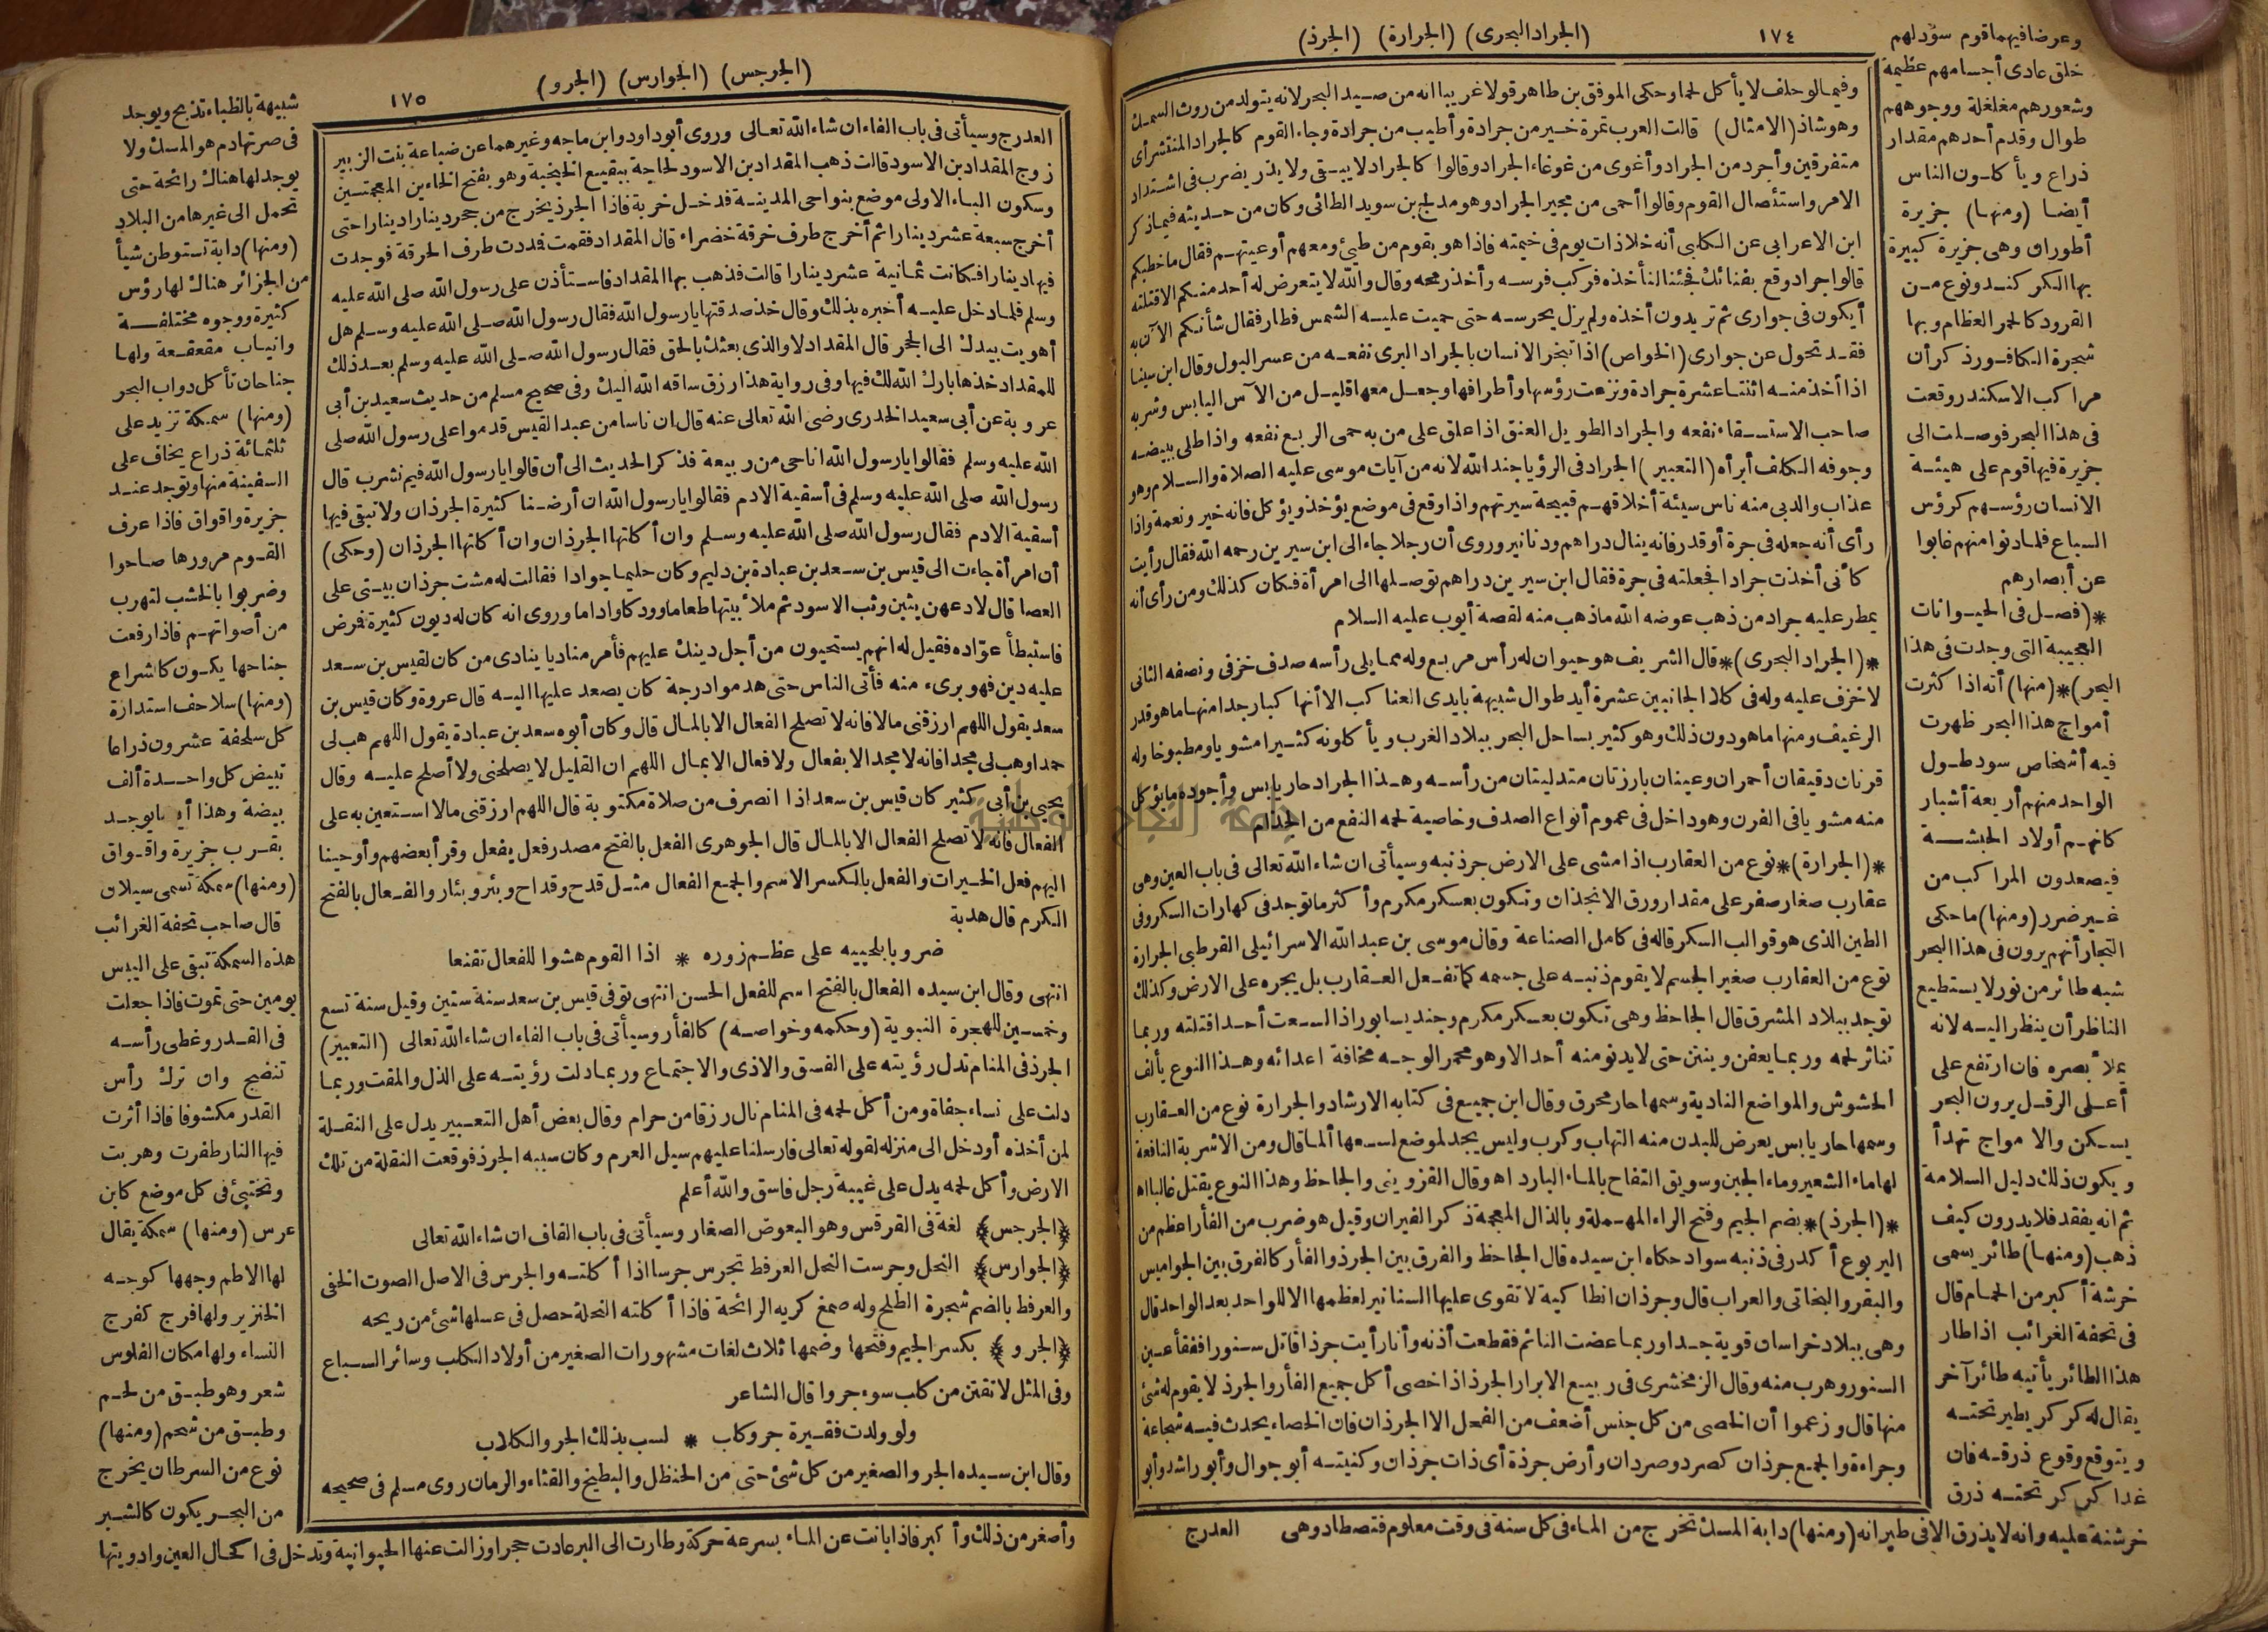 (الجراد البحرى) (الجرارة) (الجرذ)
١٧٤
وفيما لو حلف لا يأكل لحما وحكى الموفق بن طاهر قولا غريبا انه من صيد البحر لانه يتولد من روث السمك
وهو شاذ (الامثال) قالت العرب تمرة خير من جرادة وأطيب من جرادة وجاء القوم كالجراد المنتشر أى
متفرقين وأجرد من الجراد وأغوى من غوغاء الجراد وقالوا كالجراد لا يبقى ولا يذر يضرب فى اشتداد
الامر واستئصال القوم وقالوا أحمى من مجير الجراد وهو مدلج بن سويد الطائى وكان من حديثه فيما ذكر
ابن الاعرابى عن الكلبى أنه خلا ذات يوم فى خيمته فاذا هو بقوم من طيئ ومعهم أوعيتهم فقال ما خطبكم
قالوا جراد وقع بفنائك فجئنا لنأخذه فركب فرسه وأخذ رمحه وقال والله لا يتعرض له أحد منكم الا قتلته
أيكون فى جوارى ثم تريدون أخذه ولم يزل يحرسه حتى حميت عليه الشمس فطار فقال شأنكم الآن به
فقد تحول عن جوارى (الخواص) اذا تبخر الانسان بالجراد البرى نفعه من عسر البول وقال ابن سينا
اذا أخذ منه اثنتا عشرة جرادة ونزعت رؤسها وأطرافها وجعل معها قليل من الآس اليابس وشربه
صاحب الاستسقاء نفعه والجراد الطويل العنق اذا علق على من به حمى الربع نفعه واذا طلى ببيضه
وجوفه الكلف أبرأه (التعبير) الجراد فى الرؤيا جند الله لانه من آيات موسى عليه الصلاة والسلام وهو
عذاب والدبى منه ناس سيئة أخلاقهم قبيحة سيرتهم واذا وقع فى موضع يؤخذ ويؤكل فانه خير ونعمة واذا
رأى أنه جعله فى جرة أو قدر فانه ينال دراهم ودنانير وروى أن رجلا جاء الى ابن سيرين رحمه الله فقال رأيت
كأنى أخذت جرادا فجعلته فى جرة فقال ابن سيرين دراهم توصلها الى امرأة فكان كذلك ومن رأى أنه
يمطر عليه جراد من ذهب عوضه الله ما ذهب منه لقصة أيوب عليه السلام
*(الجراد البحرى)* قال الشريف هو حيوان له رأس مربع وله مما يلى رأسه صدف خزفى ونصفه الثانى
لا خزف عليه وله فى كلا الجانبين عشرة أيد طوال شبيهة بايدى العناكب الا أنها كبار جدا منها ما هو قدر
الرغيف ومنها ما هو دون ذلك وهو كثير بساحل البحر ببلاد الغرب ويأكلونه كثيرا مشويا ومطبوخا وله
قرنان دقيقان أحمران وعينان بارزتان متدليتان من رأسه وهذا الجراد حار يابس وأجوده ما يؤكل
منه مشويا فى الفرن وهو داخل فى عموم أنواع الصدف وخاصية لحمه النفع من الجذام
*(الجرارة)* نوع من العقارب اذا مشى على الارض جر ذنبه وسيأتى ان شاء الله تعالى فى باب العين وهى
عقارب صغار صفر على مقدار ورق الانجذان وتكون بعسكر مكرم وأكثر ما توجد فى كهارات السكر وفى
الطين الذى هو قوالب السكر قاله فى كامل الصناعة وقال موسى بن عبد الله الاسرائيلى القرطبى الجرارة
نوع من العقارب صغير الجسم لا يقوم ذنبه على جسمه كما تفعل العقارب بل يجره على الارض وكذلك
توجد ببلاد المشرق قال الجاحظ وهى تكون بعسكر مكرم وجنديسابور اذا لسعت أحدا قتلته وربما
تناثر لحمه وربما يعفن وينتن حتى لا يدنو منه أحد الا وهو مخمر الوجه مخافة اعدائه وهذا النوع يألف
الحشوش والمواضع الندية وسمها حار محرق وقال ابن جميع فى كتابه الارشاد والجرارة نوع من العقارب
وسمها حار يابس يعرض للبدن منه التهاب وكرب وليس يجد لموضع لسعها ألما قال ومن الاشربة النافعة
لها ماء الشعير وماء الجبن وسويق التفاح بالماء البارد اه وقال القزوينى والجاحظ وهذا النوع يقتل غالبا اه
*(الجرذ)* بضم الجيم وفتح الراء المهملة وبالذال المعجمة ذكر الفيران وقيل هو ضرب من الفأر اعظم من
اليربوع أكدر فى ذنبه سواد حكاه ابن سيده قال الجاحظ والفرق بين الجرذ والفأر كالفرق بين الجواميس
والبقر والبخاتى والعراب قال وجرذان انطاكية لا تقوى عليها السنانير لعظمها الا للواحد بعد الواحد قال
وهى ببلاد خراسان قوية جدا وربما عضت النائم فقطعت أذنه وأنا رأيت جرذا قاتل سنورا ففقأ عين
السنور وهرب منه وقال الزمخشرى فى ربيع الابرار الجرذ اذا خصى أكل جميع الفأر والجرذ لا يقوم له شئ
منها قال وزعموا أن الخصى من كل جنس أضعف من الفحل الا الجرذان فان الخصاء يحدث فيه شجاعة
وجراءة والجمع جرذان كصرد وصردان وأرض جرذة أى ذات جرذان وكنيته أبو جوال وأبو راشد وأبو
العدرج
وعرضا فيهما قوم سود لهم
خلق عادى أجسامهم عظيمة
وشعورهم مغلغلة ووجوههم
طوال وقدم أحدهم مقدار
ذراع ويأكلون الناس
أيضا (ومنها) جزيرة
أطوران وهى جزيرة كبيرة
بها الكركند ونوع من
القرود كالحمر العظام وبها
شجرة الكافور ذكر أن
مراكب الاسكندر وقعت
فى هذا البحر فوصلت الى
جزيرة فيها قوم على هيئة
الانسان رؤسهم كرؤس
السباع فلما دنوا منهم غابوا
عن أبصارهم
*(فصل فى الحيوانات
العجيبة التى وجدت فى هذا
البحر)* (منها) أنه اذا كثرت
أمواج هذا البحر ظهرت
فيه أشخاص سود طول
الواحد منهم أربعة أشبار
كانهم أولاد الحبشة
فيصعدون المراكب من
غير ضرر (ومنها) ما حكى
التجار أنهم يرون فى هذا البحر
شبه طائر من نور لا يستطيع
الناظر أن ينظر اليه لانه
يملأ بصره فان ارتفع على
أعلى الدقل يرون البحر
يسكن والامواج تهدأ
ويكون ذلك دليل السلامة
ثم انه يفقد فلا يدرون كيف
ذهب (ومنها) طائر يسمى
خرشة أكبر من الحمام قال
فى تحفة الغرائب اذا طار
هذا الطائر يأتيه طائر آخر
يقال له كركر يطير تحته
ويتوقع وقوع ذرقه فان
غدا كركر تحته ذرق
خرشنة عليه وانه لا يذرق الا فى طيرانه (ومنها) دابة المسك تخرج من الماء فى كل سنة فى وقت معلوم فتصطاد وهى
(الجرجس) (الجوارس) (الجرو)
١٧٥
العدرج وسيأتى فى باب الفاء ان شاء الله تعالى وروى أبو داود وابن ماجه وغيرهما عن ضباعة بنت الزبير
زوج المقداد بن الاسود قالت ذهب المقداد بن الاسود لحاجة ببقيع الخبخبة وهو بفتح الخاءين المعجمتين
وسكون الباء الاولى موضع بنواحى المدينة فدخل خربة فاذا الجرذ يخرج من جحر دينارا دينارا حتى
أخرج سبعة عشر دينارا ثم أخرج طرف خرقة خضراء قال المقداد فقمت فمددت طرف الخرقة فوجدت
فيها دينارا فكانت ثمانية عشر دينارا قالت فذهب بها المقداد فاستأذن على رسول الله صلى الله عليه
وسلم فلما دخل عليه أخبره بذلك وقال خذ صدقتها يا رسول الله فقال رسول الله صلى الله عليه وسلم هل
أهويت بيدك الى الجحر قال المقداد لا والذى بعثك بالحق فقال رسول الله صلى الله عليه وسلم بعد ذلك
للمقداد خذها بارك الله لك فيها وفى رواية هذا رزق ساقه الله اليك وفى صحيح مسلم من حديث سعيد بن أبى
عروبة عن أبى سعيد الخدرى رضى الله تعالى عنه قال ان ناسا من عبد القيس قدموا على رسول الله صلى
الله عليه وسلم فقالوا يا رسول الله انا حى من ربيعة فذكر الحديث الى أن قالوا يا رسول الله فيم نشرب قال
رسول الله صلى الله عليه وسلم فى أسقية الادم فقالوا يا رسول الله ان أرضنا كثيرة الجرذان ولا تبقى فيها
أسقية الادم فقال رسول الله صلى الله عليه وسلم وان أكلتها الجرذان وان أكلتها الجرذان (وحكى)
أن امرأة جاءت الى قيس بن سعد بن عبادة بن دليم وكان حليما جوادا فقالت له مشت جرذان بيتى على
العصا قال لادعهن يثبن وثب الاسود ثم ملأ بيتها طعاما وودكا واداما وروى انه كان له ديون كثيرة فرض
فاستبطأ عواده فقيل له انهم يستحيون من أجل دينك عليهم فأمر مناديا ينادى من كان لقيس بن سعد
عليه دين فهو برىء منه فأتى الناس حتى هدموا درجة كان يصعد عليها اليه قال عروة وكان قيس بن
سعد يقول اللهم ارزقنى مالا فانه لا تصلح الفعال الا بالمال قال وكان أبوه سعد بن عبادة يقول اللهم هب لى
حمدا وهب لى مجدا فانه لا مجد الا بفعال ولا فعال الا بمال اللهم ان القليل لا يصلحنى ولا أصلح عليه وقال
يحيى بن أبى كثير كان قيس بن سعد اذا انصرف من صلاة مكتوبة قال اللهم ارزقنى مالا استعين به على
الفعال فانه لا تصلح الفعال الا بالمال قال الجوهرى الفعل بالفتح مصدر فعل يفعل وقرأ بعضهم وأوحينا
اليهم فعل الخيرات والفعل بالكسر الاسم والجمع الفعال مثل قدح وقداح وبئر وبئار والفعال بالفتح
الكرم قال هدبة
ضروبا بلحييه على عظم زوره * اذا القوم هشوا للفعال تقنعا
انتهى وقال ابن سيده الفعال بالفتح اسم للفعل الحسن انتهى توفى قيس بن سعد سنة ستين وقيل سنة تسع
وخمسين للهجرة النبوية (وحكمه وخواصه) كالفأر وسيأتى فى باب الفاء ان شاء الله تعالى (التعبير)
الجرذ فى المنام تدل رؤيته على الفسق والاذى والاجتماع وربما دلت رؤيته على الذل والمقت وربما
دلت على نساء جفاة ومن أكل لحمه فى المنام نال رزقا من حرام وقال بعض أهل التعبير يدل على النقلة
لمن أخذه أو دخل الى منزله لقوله تعالى فارسلنا عليهم سيل العرم وكان سببه الجرذ فوقعت النقلة من تلك
الارض وأكل لحمه يدل على غيبة رجل فاسق والله أعلم
﴿الجرجس﴾ لغة فى القرقس وهو البعوض الصغار وسيأتى فى باب القاف ان شاء الله تعالى
﴿الجوارس﴾ النحل وجرست النحل العرفط تجرس جرسا اذا أكلته والجرس فى الاصل الصوت الخفى
والعرفط بالضم شجرة الطلح وله صمغ كريه الرائحة فاذا أكلته النحلة حصل فى عسلها شئ من ريحه
﴿الجرو﴾ بكسر الجيم وفتحها وضمها ثلاث لغات مشهورات الصغير من أولاد الكلب وسائر السباع
وفى المثل لا تقتن من كلب سوء جروا قال الشاعر
ولو ولدت فقيرة جرو كلب * لسب بذلك الجرو الكلاب
وقال ابن سيده الجرو الصغير من كل شئ حتى من الحنظل والبطيخ والقثاء والرمان روى مسلم فى صحيحه
شبيهة بالظباء تذبح ويوجد
فى صرتها دم هو المسك ولا
يوجد لها هناك رائحة حتى
تحمل الى غيرها من البلاد
(ومنها) دابة تستوطن شيأ
من الجزائر هناك لها رؤس
كثيرة ووجوه مختلفة
وانياب معقفة ولها
جناحان تأكل دواب البحر
(ومنها) سمكة تزيد على
ثلثمائة ذراع يخاف على
السفينة منها وتوجد عند
جزيرة واقواق فاذا عرف
القوم مرورها صاحوا
وضربوا بالخشب لتهرب
من أصواتهم فاذا رفعت
جناحها يكون كالشراع
(ومنها) سلاحف استدارة
كل سلحفة عشرون ذراعا
تبيض كل واحدة ألف
بيضة وهذا أيضا يوجد
بقرب جزيرة واقواق
(ومنها) سمكة تسمى سيلان
قال صاحب تحفة الغرائب
هذه السمكة تبقى على اليبس
يومين حتى تموت فاذا جعلت
فى القدر وغطى رأسه
تنضج وان ترك رأس
القدر مكشوفا فاذا أثرت
فيها النار طفرت وهربت
وتختبئ فى كل موضع كابن
عرس (ومنها) سمكة يقال
لها الاطم وجهها كوجه
الخنزير ولها فرج كفرج
النساء ولها مكان الفلوس
شعر وهو طبق من لحم
وطبق من شحم (ومنها)
نوع من السرطان يخرج
من البحر يكون كالشبر
وأصغر من ذلك وأكبر فاذا بانت عن الماء بسرعة حركة وطارت الى البر عادت حجرا وزالت عنها الحيوانية وتدخل فى اكحال العين وادويتها
جامعة النجاح الوطنية